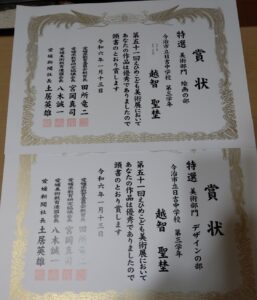 賞状
特選 美術部門 絵画の部
今治市立日吉中学校 第三学年
越智 聖埜
第五十一回えひめこども美術展において
あなたの作品は優秀でありましたので
頭書のとおり賞します
令和六年一月十三日
田所 竜二
宮岡 真司
八木 誠一
愛媛新聞社長 土居英雄
賞状
特選 美術部門 デザインの部
今治市立日吉中学校 第三学年
越智 聖埜
第五十一回えひめこども美術展において
あなたの作品は優秀でありましたので
頭書のとおり賞します
令和六年一月十三日
田所 竜二
宮岡 真司
八木 誠一
愛媛新聞社長 土居英雄